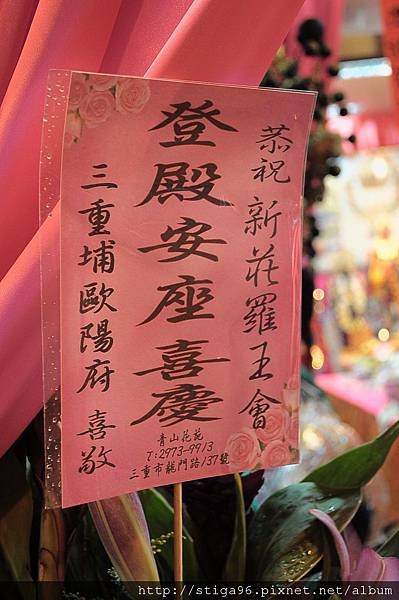 恭祝新莊羅王會
登殿安座喜慶
三重埔歐陽府 喜敬
青山花苑
T:2973-9913
三重市龍門路137號
http://stiga96.pixnet.net/album